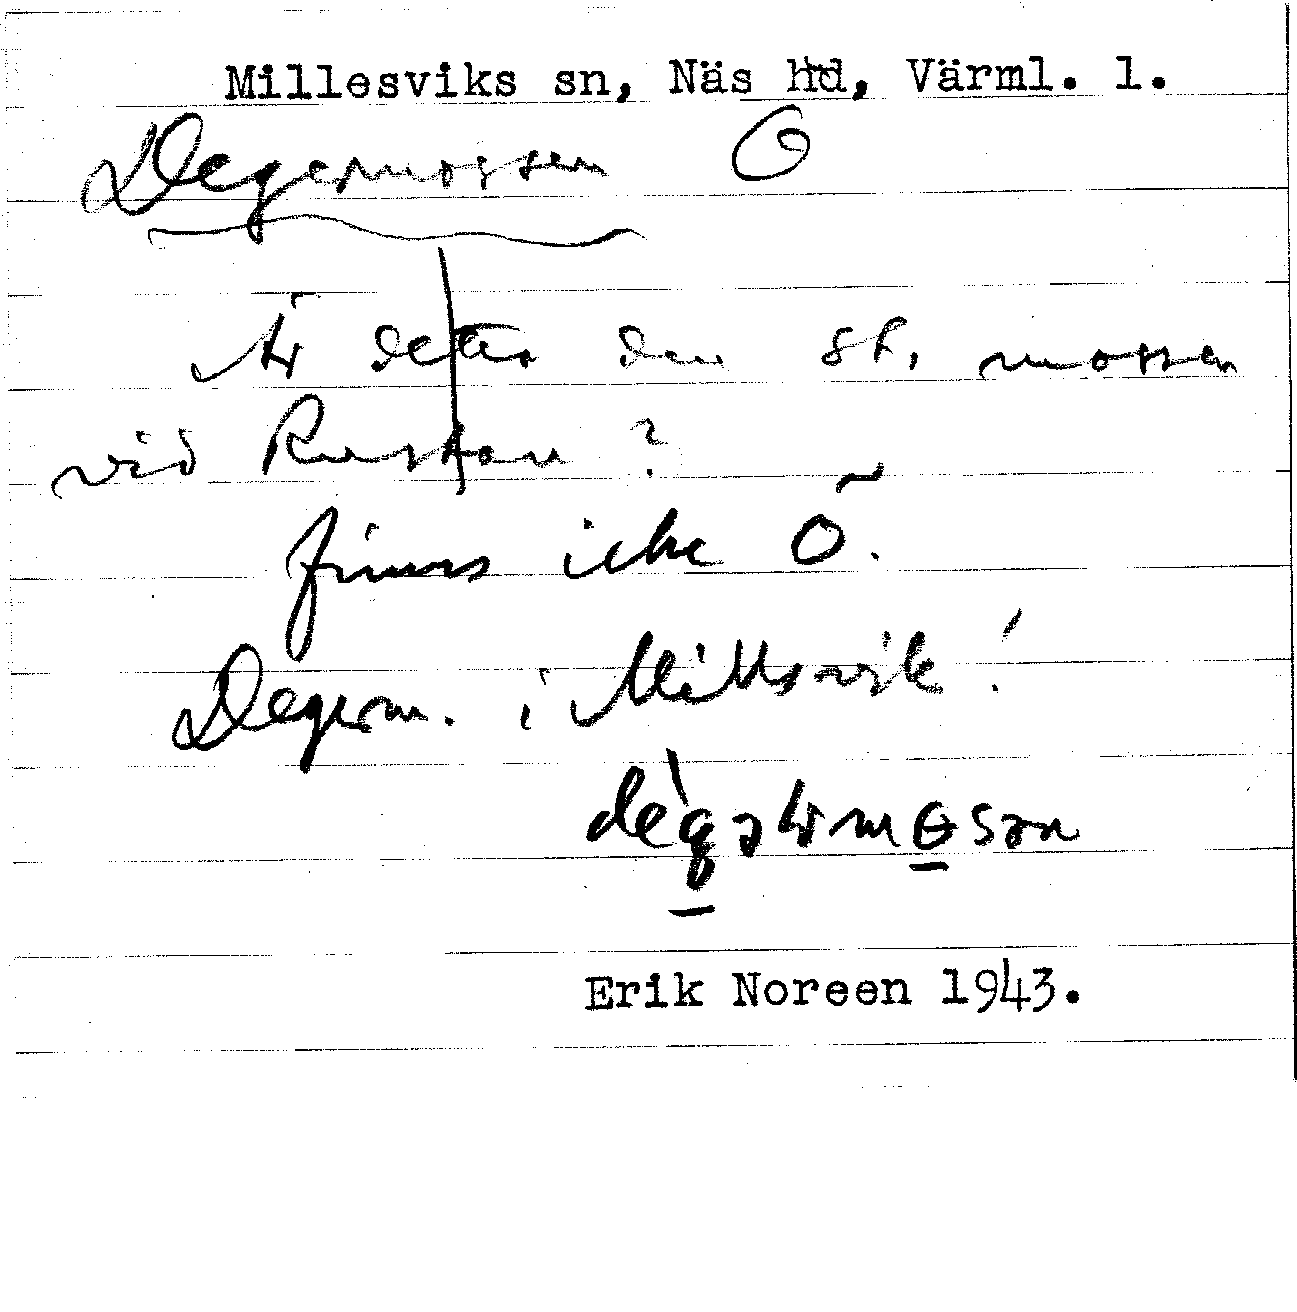 Millesviks sn, Näs hd, Värml. l.
Degermossen
Är detta den st. mossen
vid Rustan ?
finns icke Ö.
Degerm. i Millsvik !
Erik Noreen 1943.